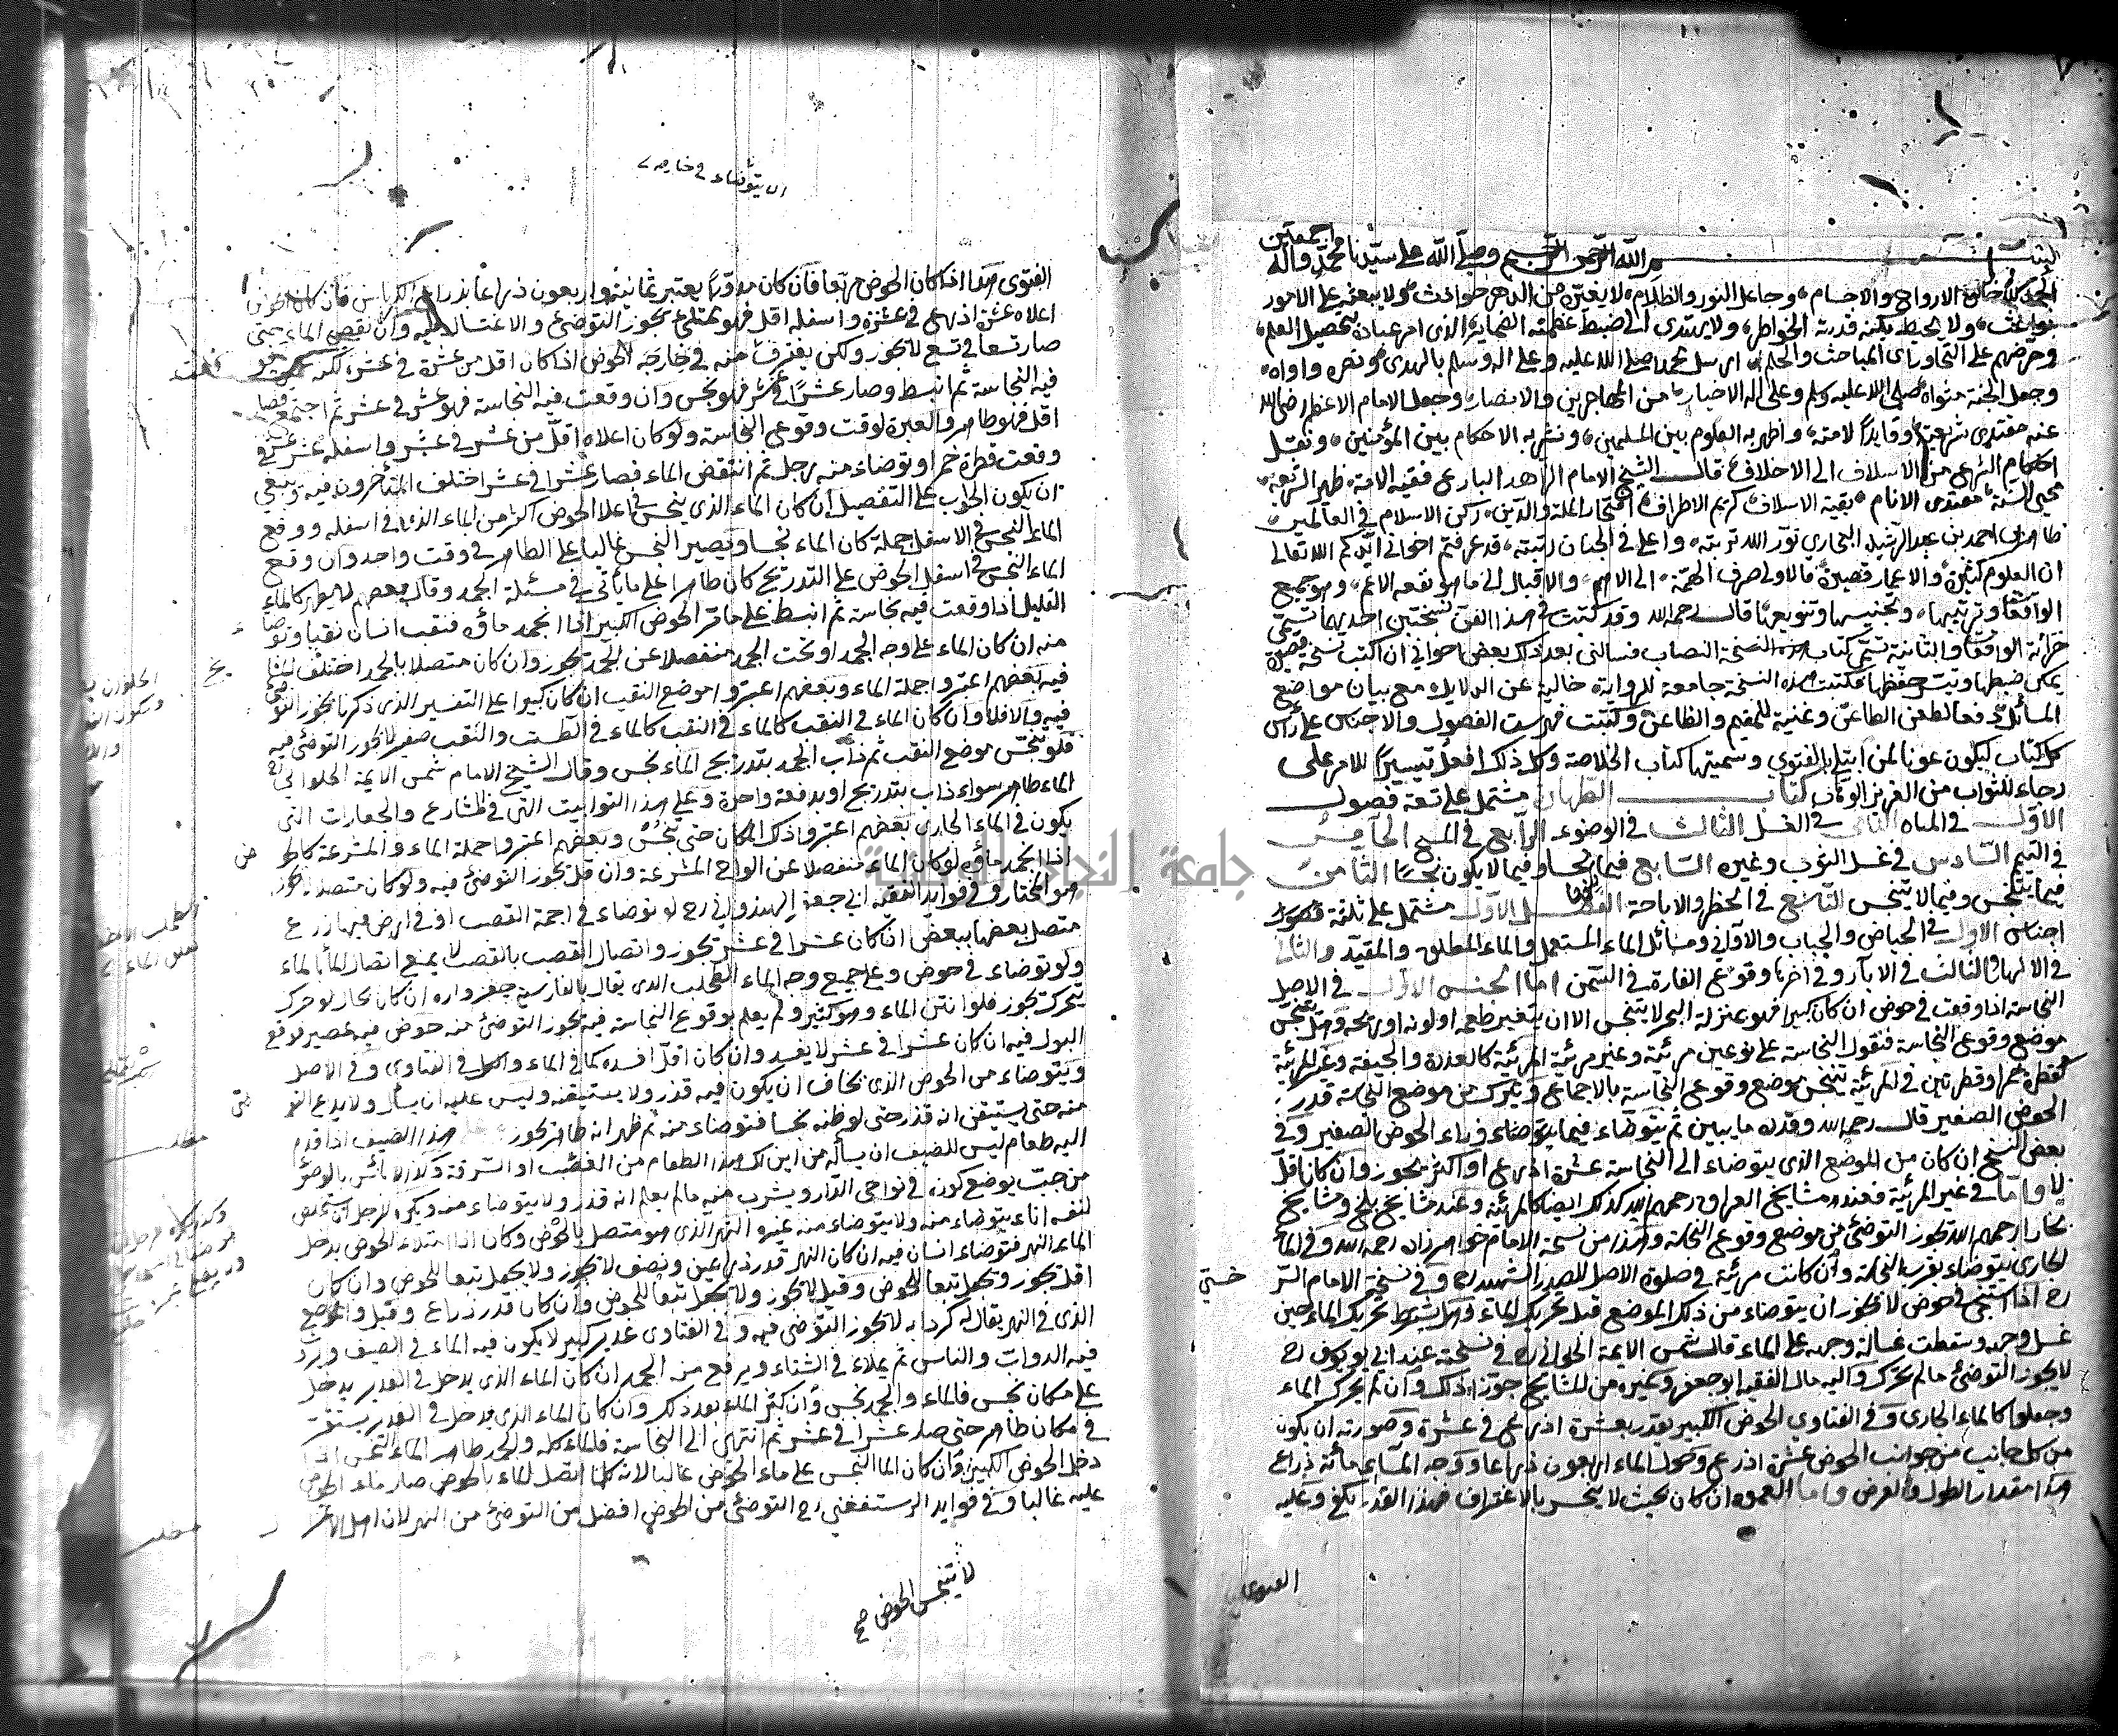 بسم الله الرحمن الرحيم وصلى الله على سيدنا محمد واله اجمعين
الحمد لله خالق الارواح والاجسام وجاعل النور والظلام لا يغيره من الدهر حوادث ولا يبعثه على الامور
بواعث ولا يحيط بكنه قدرته الخواطر ولا يهتدى الى ضبط عظمته الضماير الذى امر عباده بتحصيل العلم
وحرضهم على المباحث والحلم ارسل محمدا صلى الله عليه وعلى اله وسلم بالهدى ونصره واواه
وجعل الجنة مثواه صلى الله عليه وسلم وعلى اله الاخيار من المهاجرين والانصار وجعل الامام الاعظم رضى الله
عنه مقتدى شرعته وقايدا لامته واظهر به العلوم بين المسلمين ونشر به الاحكام بين المؤمنين ونقل
احكام الشرع من الاسلاف الى الاخلاف قال الشيخ الامام الزاهد البارع فقيه الامة ظهير الشريعة
محيى السنة مقتدى الانام بقية الاسلاف كريم الاطراف افتخار الملة والدين ركن الاسلام فى العالمين
طاهر بن احمد بن عبد الرشيد البخاري نور الله تربته واعلى فى الجنان رتبته قد عرفتم اخوانى ايدكم الله تعالى
ان العلوم كثيرة والاعمار قصيرة فالاولى صرف الهمة الى الاهم والاقبال الى ما هو نفعه الاعم وهو جمع
الواقعات وترتيبها وتجنيسها وتنويعها قال رحمه الله وقد كتبت فى هذا الفن نسختين احديهما تسمى
خزانة الواقعات والثانية تسمى كتاب النصاب فسالنى بعد ذلك بعض اخوانى ان اكتب نسخة قصيرة
يمكن ضبطها ويتيسر حفظها فكتبت هذه النسخة جامعة للرواية خالية عن الدلايل مع بيان مواضع
المسائل دفعا لطعن الطاعن وغنية للمقيم والظاعن وكتبت فهرست الفصول والاجناس على راس
كل كتاب ليكون عونا لمن ابتلى بالفتوى وسميتها كتاب الخلاصة وكل ذلك افعل تيسيرا للامر على
رجاء للثواب من العزيز الوهاب كتاب الطهارة مشتمل على تسعة فصول
الاول فى المياه الثانى فى الغسل الثالث فى الوضوء الرابع فى المسح الخامس
فى التيمم السادس فى غسل الثوب وغيره السابع فيما يكون نجسا وفيما لا يكون نجسا الثامن
فيما يتنجس وفيما لا يتنجس التاسع فى الحظر والاباحة الفصل الاول مشتمل على ثلثة
اجناس الاول فى الحياض والجباب والاوانى ومسائل الماء المستعمل والماء المطلق والمقيد والثانى
فى الانهار والثالث فى الابار وفى اخرها وقوع الفارة فى السمن اما الجنس الاول فى الاصل
النجاسة اذا وقعت فى حوض ان كان كبيرا فهو بمنزلة البحر لا يتنجس الا ان يتغير طعمه او لونه او ريحه وهل يتنجس
موضع وقوع النجاسة فنقول النجاسة على نوعين مرئية وغير مرئية المرئية كالعذرة والجيفة وغير المرئية
كقطرة خمر او قطرتين فى المرئية يتنجس موضع وقوع النجاسة بالاجماع ويترك من موضع النجاسة قدر
الحوض الصغير قال رحمه الله وقدره ما يبين ثم يتوضاء فيما وراء الحوض الصغير وفى
بعض النسخ ان كان من الموضع الذى يتوضاء الى النجاسة عشرة اذرع او اكثر يجوز وان كان اقل
لا واما فى غير المرئية فعند مشايخ العراق رحمهم الله كذلك ايضا كالمرئية وعند مشايخ بلخ ومشايخ
بخارا رحمهم الله يجوز التوضئ من موضع وقوع النجاسة وهذا من نسخة الامام خواهر زاده رحمه الله وفى الماء
الجارى يتوضاء بقرب النجاسة وان كانت مرئية فى صلوة الاصل للصدر الشهيد رح وفى نسخة الامام السر
خسى
رح اذا استنجى فى حوض لا يجوز ان يتوضاء من ذلك الموضع قبل تحريك الماء وهل يشترط تحريك الماء حين
غسل وجهه وسقطت غسالة وجهه على الماء قال شمس الايمة الحلوانى رح فى نسخته عند ابى يوسف رح
لا يجوز التوضئ ما لم يحرك واليه مال الفقيه ابو جعفر وغيره من المشايخ جوزوا ذلك وان لم يحرك الماء
وجعلوا كالماء الجارى وفى الفتاوى الحوض الكبير يقدر بعشرة اذرع فى عشرة وصورته ان يكون
من كل جانب من جوانب الحوض عشرة اذرع وحول الماء اربعون ذراعا ووجه الماء مائة ذراع
هذا مقدار الطول والعرض واما العمق ان كان بحيث لا ينحسر بالاغتراف فهذا القدر يكفى وعليه
الفتوى
ان يتوضاء فى خارجه
الفتوى هذا اذا كان الحوض مربعا فان كان مدورا يعتبر ثمانية واربعون ذراعا بذراع الكرباس فان كان الحوض
اعلاه عشرة اذرع فى عشرة واسفله اقل فهو ممتلئ يجوز التوضئ والاغتسال فيه وان نقص الماء حتى
صار تسعا فى تسع لا يجوز ولكن يغترف منه فى خارجه الحوض اذا كان اقل من عشرة فى عشر لكنه عميق وقعت
فيه النجاسة ثم انبسط وصار عشرا فى عشر فهو نجس وان وقعت فيه النجاسة فهو عشر فى عشر ثم اجتمع فصار
اقل فهو طاهر والعبرة لوقت وقوع النجاسة ولو كان اعلاه اقل من عشر فى عشر واسفله عشر فى عشر
وقعت قطرة خمر او توضاء منه رجل ثم انتقض الماء فصار عشرا فى عشر اختلف المتأخرون فيه وينبغى
ان يكون الجواب على التفصيل ان كان الماء الذى ينجس فى اعلا الحوض اكثر من الماء الذى فى اسفله ووقع
الماء النجس فى الاسفل جملة كان الماء نجسا ويصير النجس غالبا على الطاهر فى وقت واحد وان وقع
الماء النجس فى اسفل الحوض على التدريج كان طاهرا على ما يأتى فى مسئلة الجمد وقال بعضهم لا يطهر كالماء
القليل اذا وقعت فيه نجاسة ثم انبسط على ما قر الحوض الكبير اذا انجمد ماؤه فنقب انسان نقبا وتوضا
منه ان كان الماء على وجه الجمد او تحت الجمد منفصلا عن الجمد يجوز وان كان متصلا بالجمد اختلف المشايخ
فيه بعضهم اعتبروا جملة الماء وبعضهم اعتبروا موضع النقب ان كان كبيرا على التفسير الذى ذكرنا يجوز التوضئ
فيه والا فلا وان كان الماء فى النقب كالماء فى الطست والنقب صغير لا يجوز التوضئ فيه
فلو تنجس موضع النقب ثم ذاب الجمد بتدريج الماء نجس وقال الشيخ الامام شمس الايمة الحلوانى رح
الماء طاهر سواء ذاب بتدريج او بدفعة واحدة وعلى هذا التوابيت التى فى المشارع والجعارات التى
يكون فى الماء الجارى بعضهم اعتبروا ذلك المكان حتى ينجس وبعضهم اعتبروا جملة الماء والمشرعة كالحوض
اذا انجمد ماؤه لو كان الماء منفصلا عن الواح المشرعة وان قل يجوز التوضئ فيه ولو كان متصلا لا يجوز
هو المختار وفى فوايد الفقيه ابى جعفر الهندوانى رح لو توضاء فى اجمة القصب او فى ارض فيها زرع
متصل بعضها ببعض ان كان عشرا فى عشر يجوز واتصال القصب بالقصب لا يمنع اتصال الماء بالماء
ولو توضاء فى حوض وعلى جميع وجه الماء الطحلب الذى يقال بالفارسية جغزواره ان كان بحال لو حرك
يتحرك يجوز فلو انتن الماء وهو كثير ولم يعلم بوقوع النجاسة فيه يجوز التوضئ منه حوض فيه عصير لو وقع
البول فيه ان كان عشرا فى عشر لا يفسد وان كان اقل افسده كما فى الماء والكل فى الفتاوى وفى الاصل
ويتوضاء من الحوض الذى يخاف ان يكون فيه قذر ولا يستيقنه وليس عليه ان يسأل ولا يدع التوضئ
منه حتى يستيقن انه قذر حتى لو ظنه نجسا فتوضاء منه ثم ظهر انه طاهر يجوز هذا الضيف اذا قدم
اليه طعام ليس للضيف ان يسأله من اين لك هذا الطعام من الغصب او السرقة وكذا لا بأس بالوضوء
من جب يوضع كوزه فى نواحى الدار ويشرب منه ما لم يعلم انه قذر ولا يتوضاء منه ويكره للرجل ان يستخلص
لنفسه اناء يتوضاء منه ولا يتوضاء منه غيره النهر الذى هو متصل بالحوض وكان اذا امتلاء الحوض يدخل
الماء النهر فتوضاء انسان فيه ان كان النهر قدر ذراعين ونصف لا يجوز ولا يجعل تبعا للحوض وان كان
اقل يجوز ويجعل تبعا للحوض وقيل لا يجوز ولا يجعل تبعا للحوض وان كان قدر ذراع وقيل الموضع
الذى فى النهر يقال له كردابه لا يجوز التوضى فيه وفى الفتاوى غدير كبير لا يكون فيه الماء فى الصيف ويروث
فيه الدواب والناس ثم يملاء فى الشتاء ويرفع منه الجمد ان كان الماء الذى يدخل فى الغدير يدخل
على مكان نجس فالماء والجمد نجس وان كثر الماء بعد ذلك وان كان الماء الذى يدخل فى الغدير يستقر
فى مكان طاهر حتى صار عشرا فى عشر ثم انتهى الى النجاسة فالماء كله والجمد طاهر الماء النجس اذا
دخل الحوض الكبير وان كان الماء النجس على ماء الحوض غالبا لانه كلما اتصل الماء بالحوض صار ماء الحوض
عليه غالبا وفى فوايد الرستغفنى رح التوضئ من الحوض افضل من التوضئ من النهر لان اهل الاعتزال
لا يتنجس الحوض صح
جامعة النجاح الوطنية